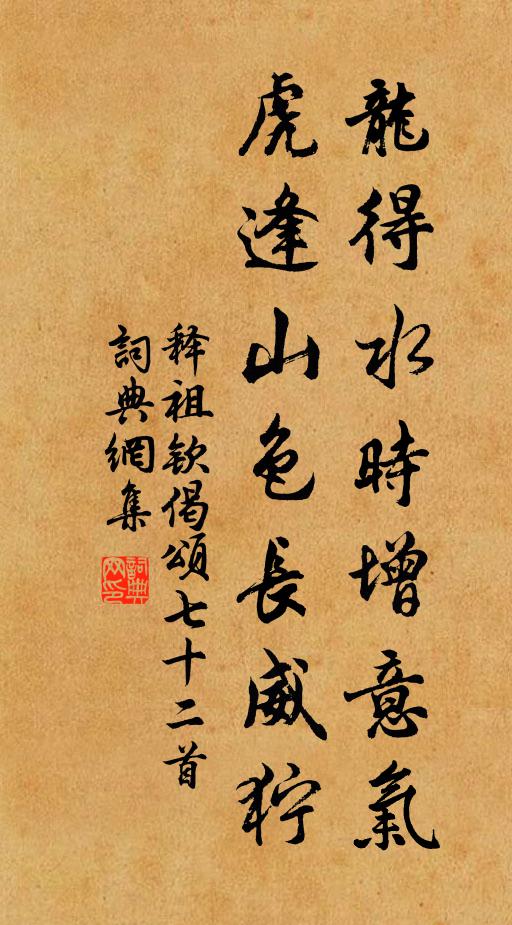 龍得水時增意氣
虎逢山色長威狞
释祖欽偈頌七十二首
詞典網集
詞典网印